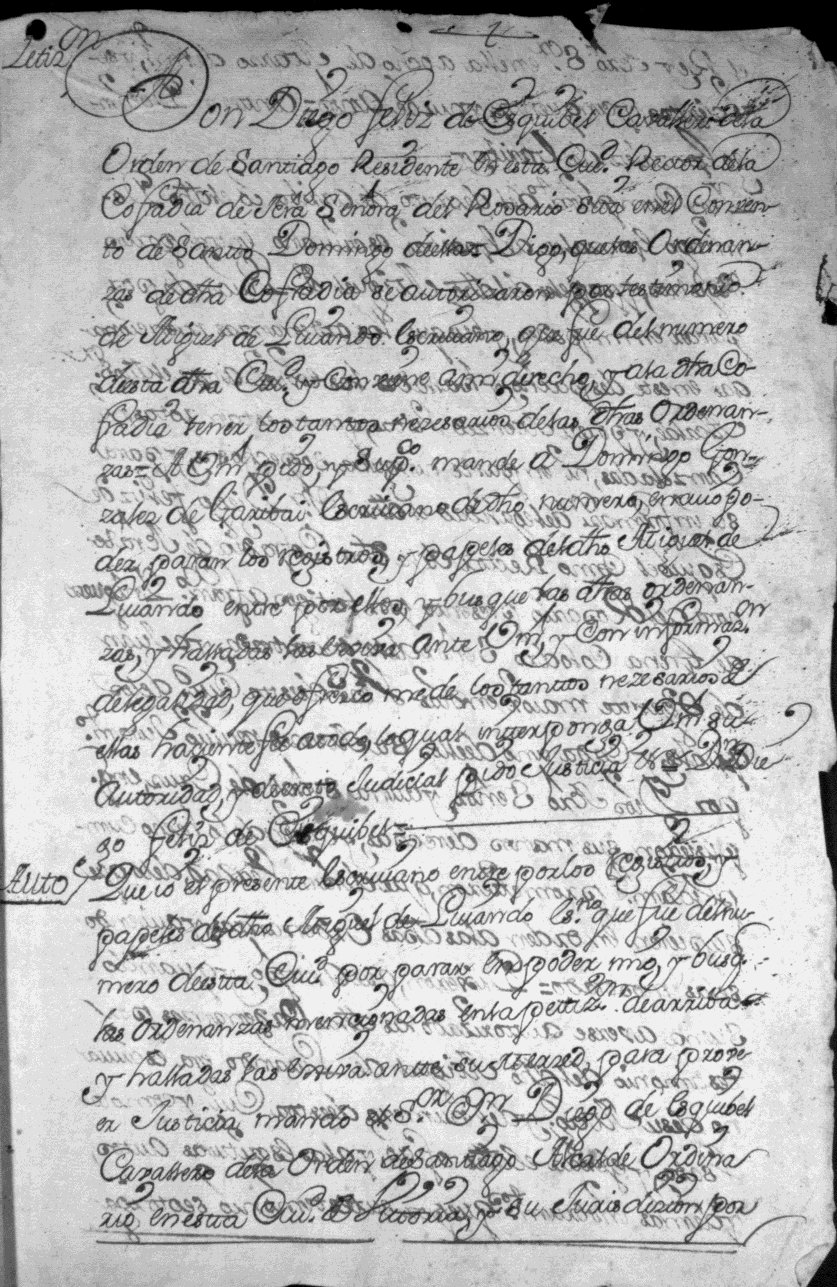 Petizon
Don Diego feliz de Esquibel Cavallero dela
Orden de Santiago Residente en esta Ciud. Rector dela
Cofradia de nra Señora del Rosario sita en el Conven-
to de Santo Domingo deella = Digo, que las Ordenan-
zas de dha Cofradia se autorizaron por testimonio
de Miguel de Luiando Escriuano, que fue del numero
desta dha Ciud. y Conviene a mi derecho, y ala dha Co-
fradia tener los tantos nezesarios delas dhas Ordenan-
zas = A Vm pido, y Supco. mande a Domingo Gon-
zalez de Garibai Escriuano de dho numero, en cuio po-
der paran los registros, y papeles del dho Miguel de
Luiando entre por ellos, y busque las dhas ordenan-
zas, y halladas las exiva ante Vm, y Con informazon
de legalidad, que ofrezco me de los tantos nezesarios
ellas haciente fe atodo, loqual interponga Vm su
Autoridad, y decreto Judicial pido Justicia Dn Die
go feliz de Esquibel =
Auto
Que io el presente Escriuano entre por los registros, y
papeles del dho Miguel de Luiando Esno. que fue del nu-
mero deesta Ciud. por parar en poder mio, y busq.
las ordenanzas mencionadas en la petizon. de arriba
y halladas las exiva ante su Merced, para prove
er Justicia mando el Sor Dn Diego de Esquibel
Cavallero dela Orden de Santiago Alcalde Ordina
rio, en esta Ciud. de Vitoria, y su Jurisdizion por